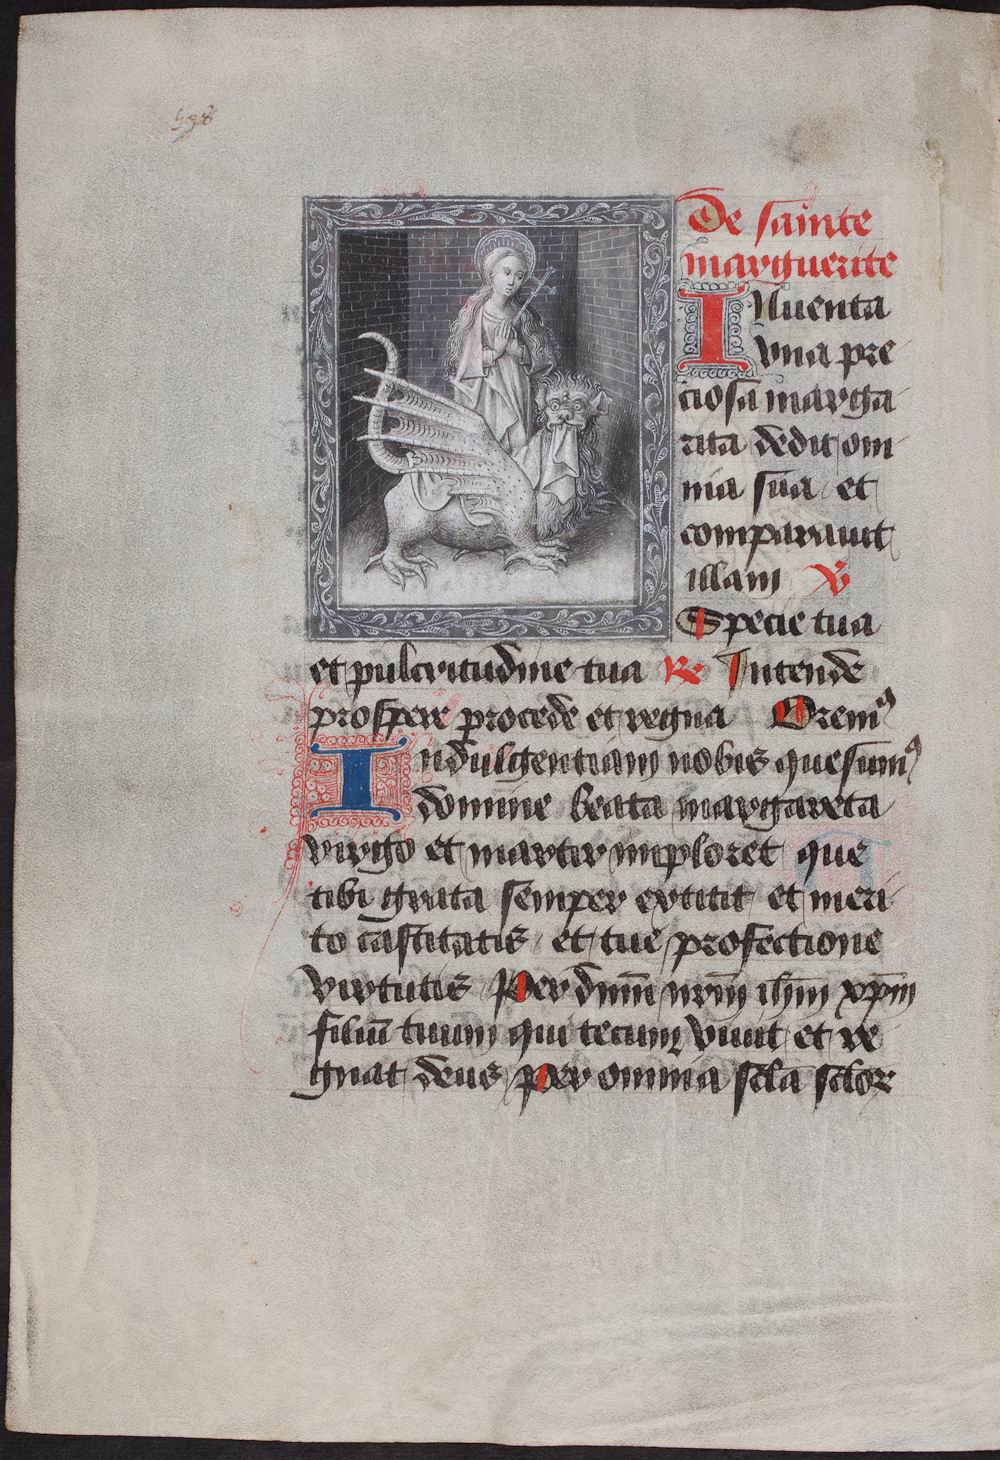 De sainte
marguerite
INuenta
vna pre
ciosa marga
rita dedit om
nia sua et
comparauit
illam V
Specie tua
et pulcritudine tua R Intende
prospere procede et regna Orem⁹
Indulgentiam nobis quesum⁹
domine beata margareta
virgo et martir imploret que
tibi grata semper extitit et meri
to castitatis et tue professione
virtutis Per dn̄m nr̄m ihm̄ xp̄m
filiū tuum qui tecum viuit et re
gnat deus per omnia sc̄la sc̄lor